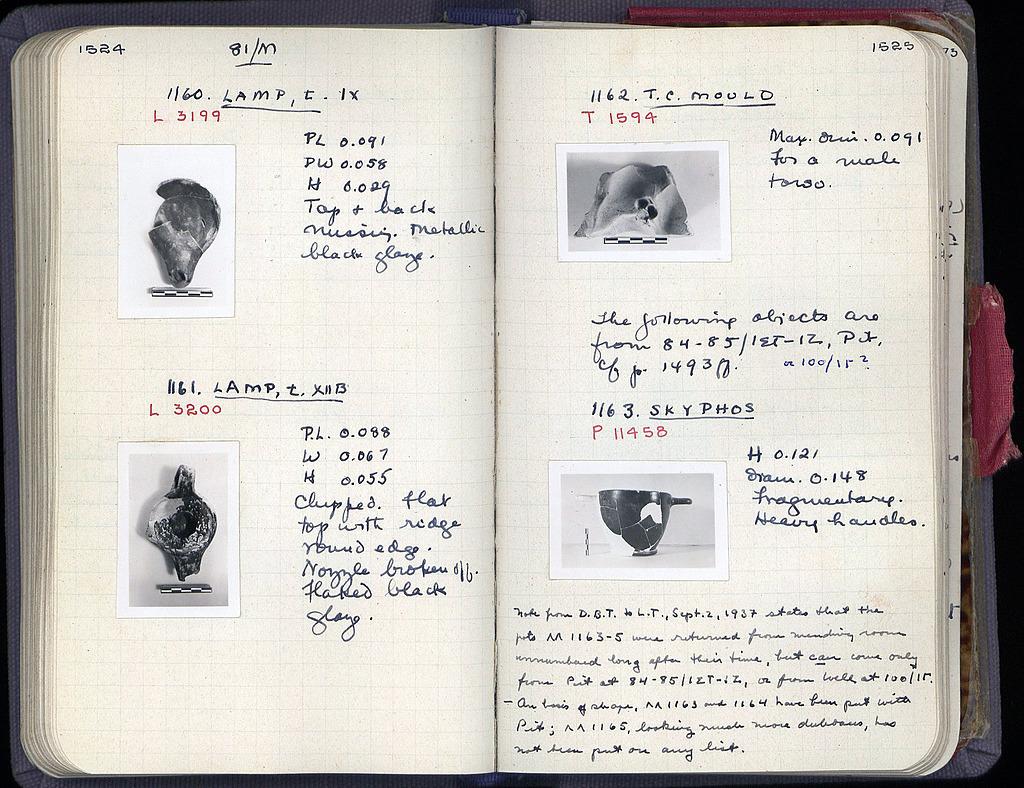 1524
81/M
1160. LAMP, t. IX
L 3199
PL 0.091
PW 0.058
H 0.029
Top & back
missing. Metallic
black glaze.
1161. LAMP, t. XIIB
L 3200
P.L. 0.088
W 0.067
H 0.055
Chipped. Flat
top with ridge
round edge.
Nozzle broken off.
Flaked black
glaze.
1525
73
1162. T.C. MOULD
T 1594
Max. dim. 0.091
For a male
torso.
The following objects are
from 84-85/IΣT-IZ, Pit,
cf p. 1493ff. or 100/15?
1163. SKYPHOS
P 11458
H 0.121
Diam. 0.148
Fragmentary.
Heavy handles.
Note from D.B.T. to L.T., Sept. 2, 1937 states that the
pots ΛΛ 1163-5 were returned from mending room
unnumbered long after their time, but can come only
from Pit at 84-85/IΣT-IZ, or from Well at 100/15.
- On basis of shape, ΛΛ 1163 and 1164 have been put with
Pit; ΛΛ 1165, looking much more dubious, has
not been put on any list.